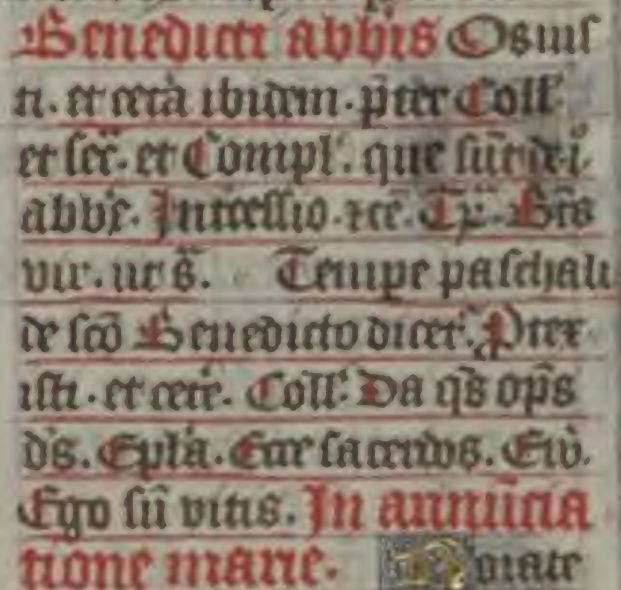 Benedicti abbīs Os iuſ
ti. et cetā ibidem. p̄ter Coll̄
et ſecr̄. et Compl̄. que ſūt de i.
abbr̄. Interceſſio. ꝛcē. Tr̄. Btūs
vir. ut s̄. Tempe paſchali
de ſcō Benedicto dicet᷑. Prex
iſti. et cete. Coll̄ Da qs̄ op̄s
ds̄. Epla. Ecce ſacerdos. Ew̄.
Ego ſū vitis. In annūcia
tione marie. Rorate